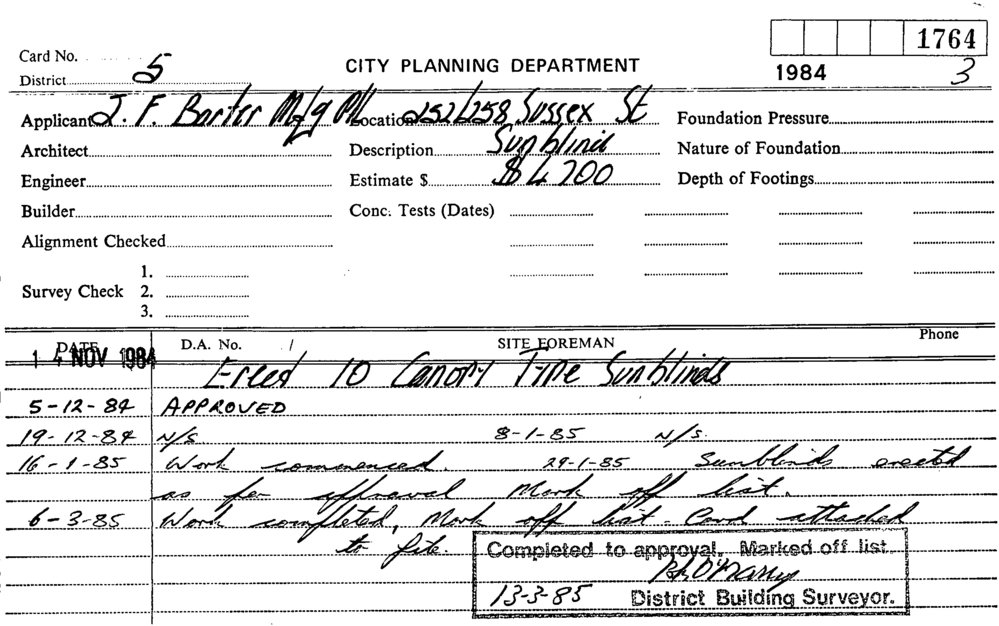 1764
Card No.
District 5
CITY PLANNING DEPARTMENT
1984 3
Applicant J. F. Barter Mfg P/L Location 252/258 Sussex St Foundation Pressure
Architect Description Sunblind Nature of Foundation
Engineer Estimate $ $4700 Depth of Footings
Builder Conc. Tests (Dates)
Alignment Checked
1.
Survey Check 2.
3.
DATE D.A. No. / SITE FOREMAN Phone
14 NOV 1984
Erect 10 Canopy Type Sunblinds
5-12-84 APPROVED
19-12-84 N/S 8-1-85 N/S.
16-1-85 Work commenced. 29-1-85 Sunblinds erected
as per approval Mark off list.
6-3-85 Work completed, Mark off list. Card attached
to file.
Completed to approval. Marked off list
13-3-85 District Building Surveyor.